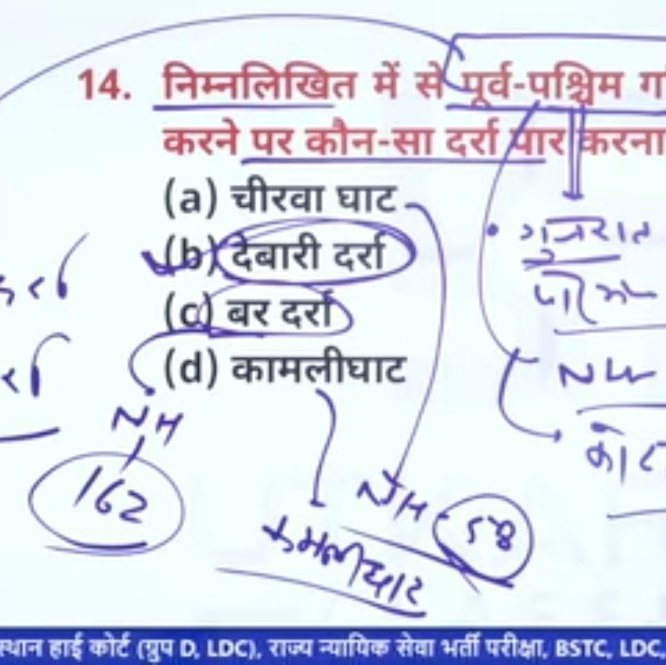 14. निम्नलिखित में से पूर्व-पश्चिम
करने पर कौन-सा दर्रा पार करना
(a) चीरवा घाट
(b) देबारी दर्रा
(c) बर दर्रा
(d) कामलीघाट
गुजरात
NH
162
NH-58
कमलीघाट
हाई कोर्ट (ग्रुप D, LDC), राज्य न्यायिक सेवा भर्ती परीक्षा, BSTC, LDC,